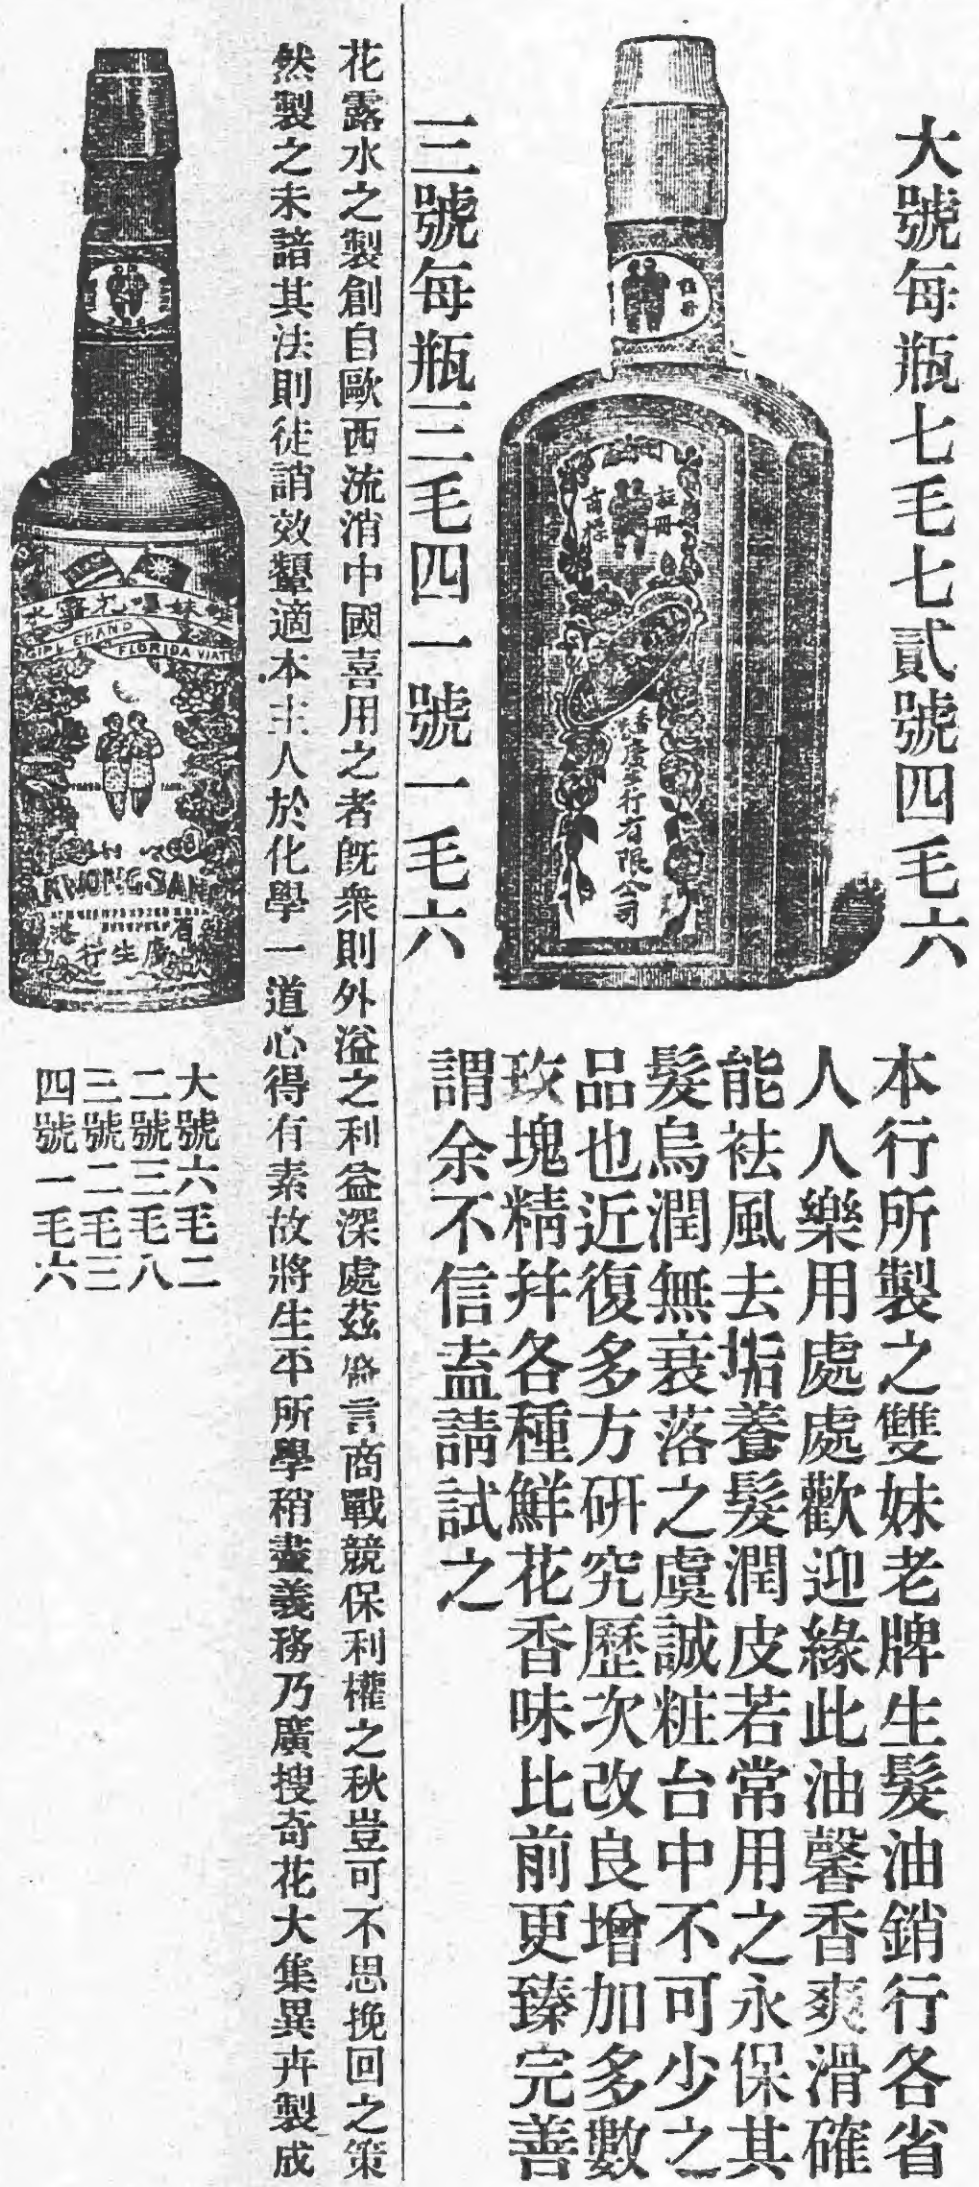 大號每瓶七毛七貳號四毛六
註冊
商標
慶差行有限公司
三號每瓶三毛四一號一毛六
本行所製之雙妹老牌生髮油銷行各省
人人樂用處處歡迎緣此油馨香爽滑確
能祛風去垢養髮潤皮若常用之永保其
髮烏潤無衰落之虞誠粧台中不可少之
品也近復多方研究歷次改良增加多數
玫瑰精幷各種鮮花香味比前更臻完善
謂余不信盍請試之
花露水之製創自歐西流消中國喜用之者旣衆則外溢之利益深處茲為言商戰競保利權之秋豈可不思挽回之策
然製之未諳其法則徒誚效顰適本主人於化學一道心得有素故將生平所學稍盡義務乃廣搜奇花大集異卉製成
GIRL BRAND
FLORIDA WAT
KWONG SANG
行生廣
大號六毛二
二號三毛八
三號二毛三
四號一毛六